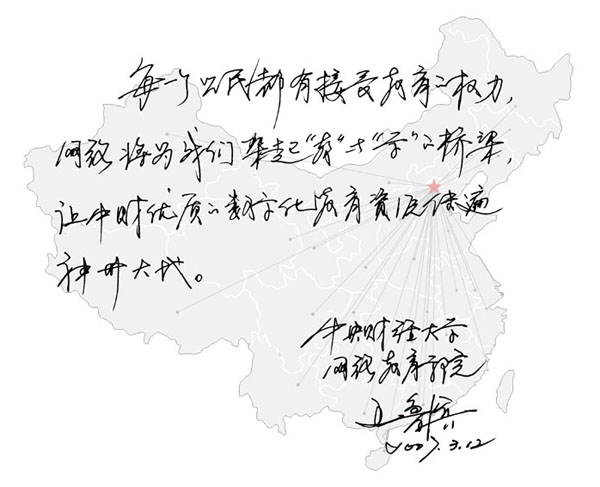 每一个公民都有接受教育的权力,
网络将为我们架起“教”与“学”的桥梁,
让中财优质的数字化教育资源传遍
神州大地。
中央财经大学
网络教育学院
2007.3.12